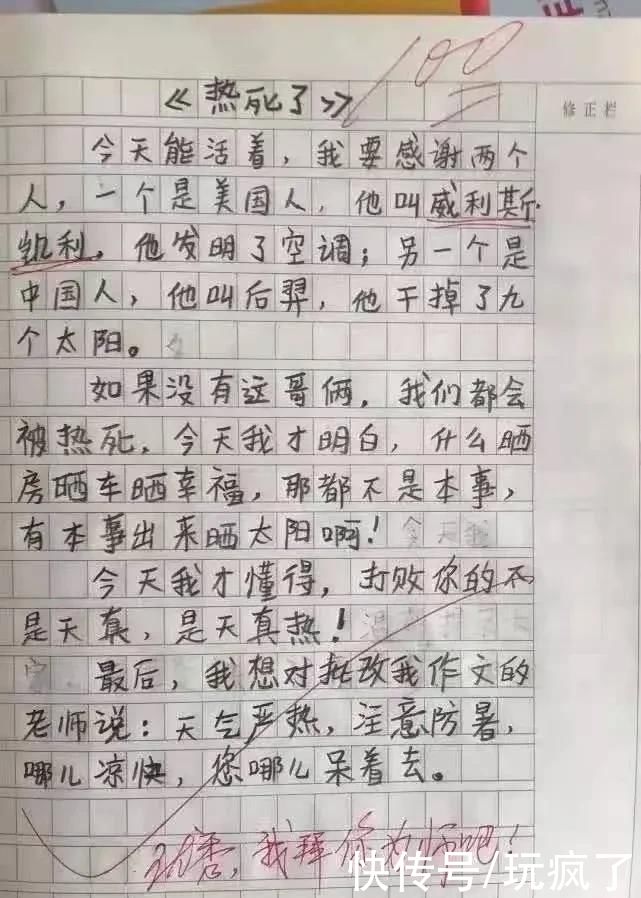 100
修正栏
《热死了》
今天能活着，我要感谢两个
人，一个是美国人，他叫威利斯·
凯利，他发明了空调；另一个是
中国人，他叫后羿，他干掉了九
个太阳。
如果没有这哥俩，我们都会
被热死，今天我才明白，什么晒
房晒车晒幸福，那都不是本事，
有本事出来晒太阳啊！
今天我才懂得，打败你的不
是天真，是天真热！
最后，我想对批改我作文的
老师说：天气严热，注意防暑，
哪儿凉快，您哪儿呆着去。
优秀，我拜你为师吧！
快传号/玩疯了